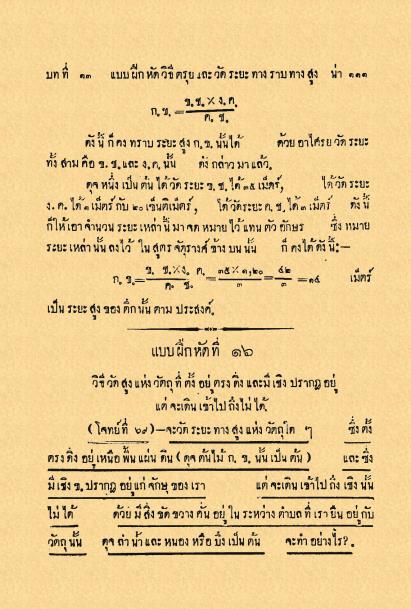 บทที่ ๑๓ แบบฝึกหัดวิธีตรุยและวัดระยะทางราบทางสูง น่า ๑๑๑
ก. ข. = ข. ช. × ง. ค. / ค. ช.
ดังนี้ก็คงทราบระยะสูง ก. ข. นั้นได้ ด้วยอาไศรยวัดระยะ
ทั้งสามคือ ข. ช. และ ง. ค. นั้น ดังกล่าวมาแล้ว.
ดุจหนึ่งเป็นต้นได้วัดระยะ ข. ช. ได้ ๓๕ เม็ตร์, ได้วัดระยะ
ง. ค. ได้ ๑ เม็ตร์กับ ๒๐ เซ็นติเม็ตร์, ได้วัดระยะ ค. ช. ได้ ๓ เม็ตร์ ดังนี้
ก็ให้เอาจำนวนระยะเหล่านี้มาจดหมายไว้แทนตัวอักษร ซึ่งหมาย
ระยะเหล่านั้นลงไว้ ในสูตรจัตุรางค์ข้างบนนั้น ก็คงได้ดังนี้:—
ก. ข. = ข. ช. × ง. ค. / ค. ช. = ๓๕ × ๑,๒๐ / ๓ = ๔๒ / ๓ = ๑๔ เม็ตร์
เป็นระยะสูงของตึกนั้นตามประสงค์.
แบบฝึกหัดที่ ๑๖
วิธีวัดสูงแห่งวัตถุที่ตั้งอยู่ตรงดิ่งและมีเชิงปรากฏอยู่
แต่จะเดินเข้าไปถึงไม่ได้.
(โจทย์ที่ ๖๙)—จะวัดระยะทางสูงแห่งวัตถุใด ๆ ซึ่งตั้ง
ตรงดิ่งอยู่เหนือพื้นแผ่นดิน (ดุจต้นไม้ ก. ข. นั้นเป็นต้น) และซึ่ง
มีเชิง ข. ปรากฏอยู่แก่จักษุของเรา แต่จะเดินเข้าไปถึงเชิงนั้น
ไม่ได้ ด้วยมีสิ่งขัดขวางคั่นอยู่ในระหว่างตำบลที่เรายืนอยู่กับ
วัตถุนั้น ดุจลำน้ำและหนองหรือบึงเป็นต้น จะทำอย่างไร?.